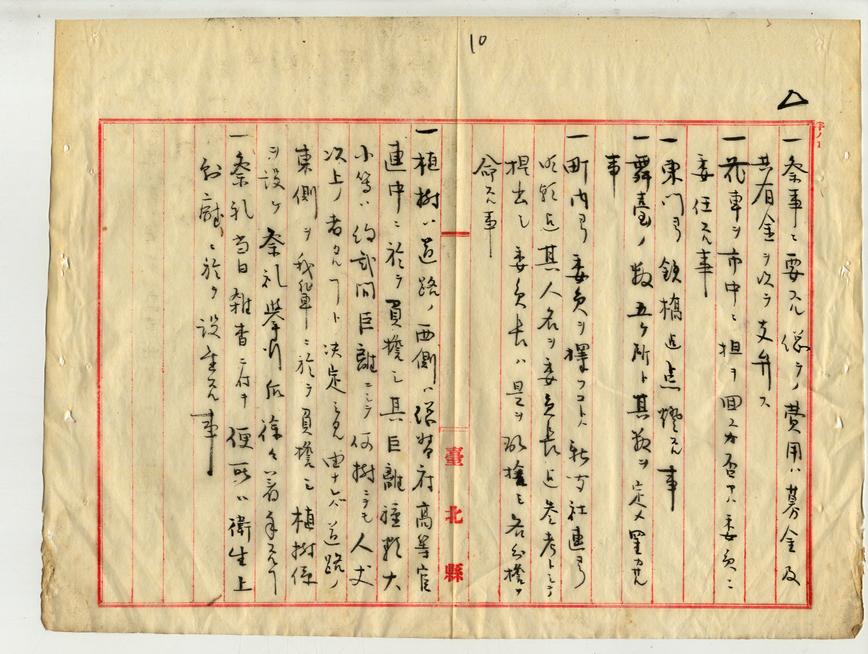 10
一祭事ニ要スル総テノ費用ハ募金及
共有金ヲ以テ支弁ス
一花車ヲ市中ニ担ヲ回スカ否ヤハ委員ニ
委任スル事
一東門ヨリ鉄橋迄点燈スル事
一舞臺ノ数五ケ所ト其数ヲ定メ置カル
事
一町内ヨリ委員ヲ擇フコトハ新聞社連ヨリ
明朝迄其人名ヲ委員長迄参考トシテ
提出シ委員長ハ是ヲ取捨シ各分擔ヲ
命スル事
一植樹ハ道路ノ西側ハ総督府高等官
連中ニ於テ負擔シ其巨離種類大
小等ハ約弐間巨離ニシテ何樹ニテモ人丈
次上ノ者タル丁ト決定シ又由テ道路ノ
東側ヲ我縣ニ於テ負擔シ植樹係
ヲ設ケ祭礼挙行后徐々ニ着手スル丁
一祭礼当日雑沓ニ付キ便所ハ衛生上
ニ於テ設置スル事
臺北縣